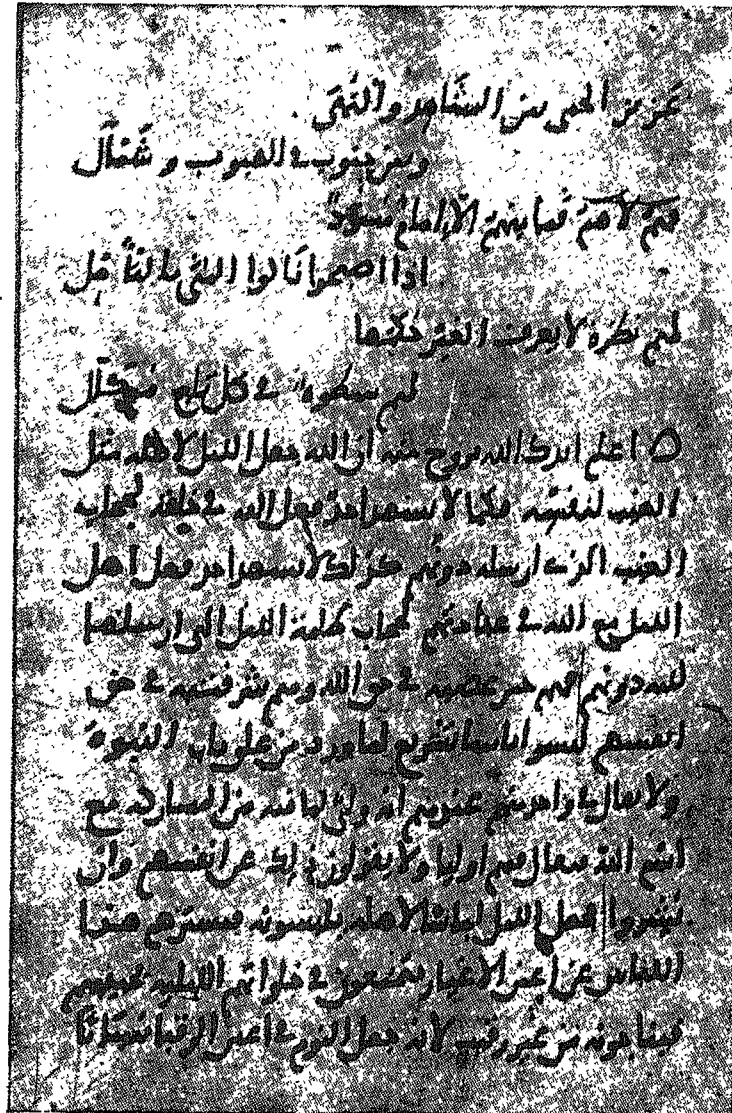 عزيز الحمى بين المشاهد والنهى
وبين جنوب في الهبوب وشمأل
الا امام مسود
اذا اصبحوا نالوا المنى بالتأمل
لهم نظرة لا يعرف الغير حكمها
لهم سطوة في كل تاج مكلل
اعلم ايدك الله بروح منه ان الله جعل الليل لاهله مثل
الغيب لنفسه فكما لا يشهد احد فعل الله في خلقه لحجاب
الغيب الذي ارسله دونهم كذلك لا يشهد احد فعل اهل
الليل مع الله في عبادتهم لحجاب ظلمة الليل التي ارسلها
الله دونهم فهم خير عصبة في حق الله وهم شر فتية في حق
انفسهم ليسوا بانبيا تشريع لما ورد من غلق باب النبوة
ولا يقال في واحد منهم عندهم انه ولي لما فيه من المشاركة مع
اسم الله فيقال فيهم اوليا ولا يقولون ذلك عن انفسهم وان
بشروا فجعل الليل لباسا لاهله يلبسونه فيسترهم هذا
اللباس عن اعين الاغيار يتمتعون في خلواتهم الليلية بحبيبهم
فيناجونه من غير رقيب لانه جعل النوم في اعين الرقبا سباتا